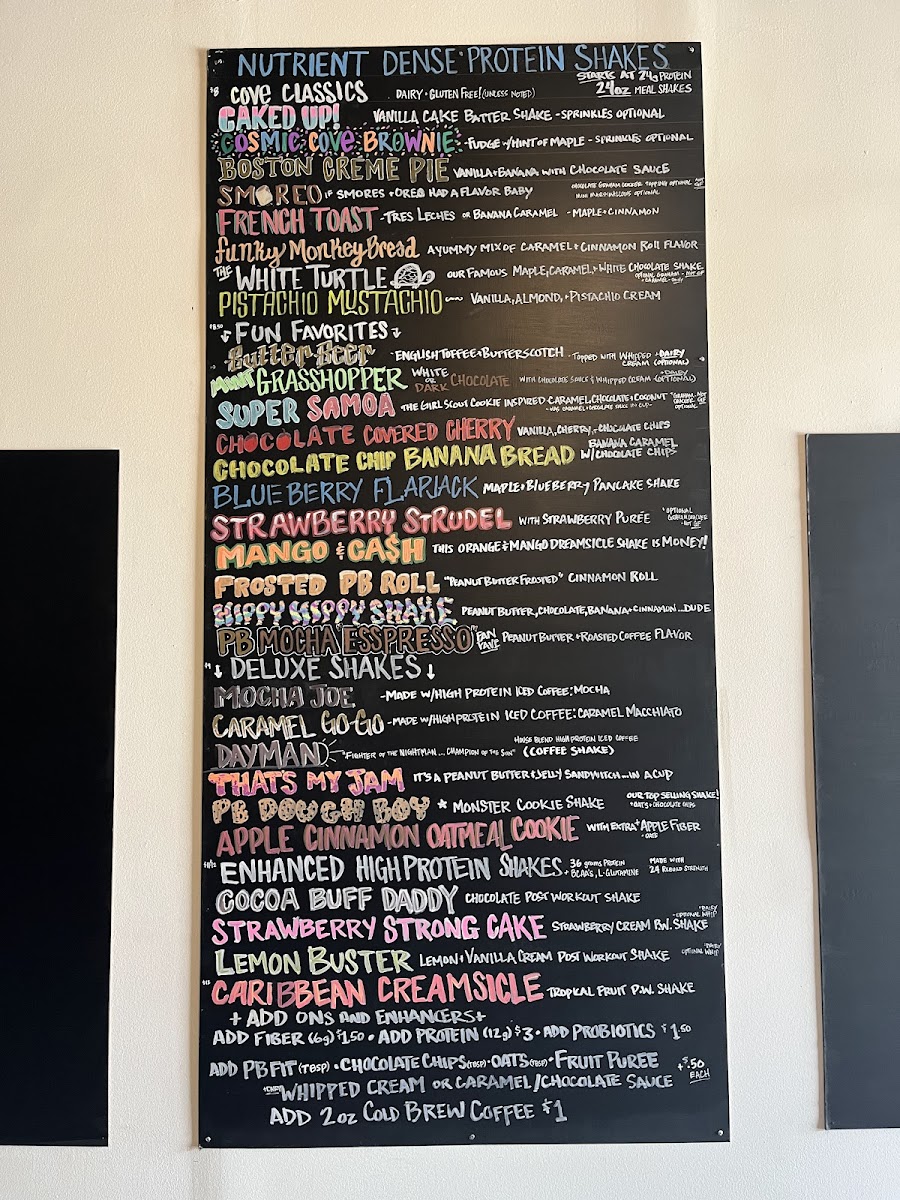 NUTRIENT DENSE PROTEIN SHAKES
STARTS AT 24g PROTEIN
24oz MEAL SHAKES
$8 COVE CLASSICS DAIRY + GLUTEN FREE! (UNLESS NOTED)
CAKED UP! VANILLA CAKE BATTER SHAKE - SPRINKLES OPTIONAL
COSMIC COVE BROWNIE - FUDGE W/HINT OF MAPLE - SPRINKLES OPTIONAL
BOSTON CRÈME PIE VANILLA + BANANA WITH CHOCOLATE SAUCE
SMOREO IF SMORES + OREO HAD A FLAVOR BABY
CHOCOLATE GRAHAM CRACKER TOPPING OPTIONAL NOT GF
MINI MARSHMALLOWS OPTIONAL
FRENCH TOAST - TRES LECHES OR BANANA CARAMEL - MAPLE + CINNAMON
Funky Monkey Bread A YUMMY MIX OF CARAMEL + CINNAMON ROLL FLAVOR
THE WHITE TURTLE OUR FAMOUS MAPLE, CARAMEL, + WHITE CHOCOLATE SHAKE
OPTIONAL GRAHAM - NOT GF
PISTACHIO MUSTACHIO VANILLA, ALMOND, + PISTACHIO CREAM
$8.50 FUN FAVORITES
Butter Beer - ENGLISH TOFFEE + BUTTERSCOTCH - TOPPED WITH WHIPPED CREAM + DAIRY (OPTIONAL)
MINT GRASSHOPPER WHITE OR DARK CHOCOLATE WITH CHOCOLATE SAUCE + WHIPPED CREAM - DAIRY (OPTIONAL)
SUPER SAMOA THE GIRL SCOUT COOKIE INSPIRED - CARAMEL, CHOCOLATE + COCONUT *GRAHAM - NOT CRACKER GF OPTIONAL
- HAS CARAMEL + CHOCOLATE SAUCE IN CUP -
CHOCOLATE COVERED CHERRY VANILLA, CHERRY, + CHOCOLATE CHIPS
CHOCOLATE CHIP BANANA BREAD BANANA CARAMEL W/CHOCOLATE CHIPS
BLUEBERRY FLAPJACK MAPLE + BLUEBERRY PANCAKE SHAKE
STRAWBERRY STRUDEL WITH STRAWBERRY PURÉE *OPTIONAL GRAHAM CRACKER - NOT GF
MANGO & CA$H THIS ORANGE & MANGO DREAMSICLE SHAKE IS MONEY!
FROSTED PB ROLL "PEANUT BUTTER FROSTED" CINNAMON ROLL
HIPPY HIPPY SHAKE PEANUT BUTTER, CHOCOLATE, BANANA + CINNAMON... DUDE
PB MOCHA ESSPRESSO FAN FAVE PEANUT BUTTER + ROASTED COFFEE FLAVOR
$9 DELUXE SHAKES
MOCHA JOE - MADE W/HIGH PROTEIN ICED COFFEE: MOCHA
CARAMEL GO-GO - MADE W/HIGH PROTEIN ICED COFFEE: CARAMEL MACCHIATO
DAYMAN "FIGHTER OF THE NIGHTMAN... CHAMPION OF THE SUN" HOUSE BLEND HIGH PROTEIN ICED COFFEE (COFFEE SHAKE)
THAT'S MY JAM IT'S A PEANUT BUTTER & JELLY SANDWITCH... IN A CUP
PB DOUGH BOY * MONSTER COOKIE SHAKE OUR TOP SELLING SHAKE!
*OATS + CHOCOLATE CHIPS
APPLE CINNAMON OATMEAL COOKIE WITH EXTRA + APPLE FIBER
- OATS
ENHANCED HIGH PROTEIN SHAKES - 36 grams PROTEIN + BCAA'S, L-GLUTAMINE MADE WITH 24 REBUILD STRENGTH
COCOA BUFF DADDY CHOCOLATE POST WORKOUT SHAKE
STRAWBERRY STRONG CAKE STRAWBERRY CREAM P.W. SHAKE *DAIRY - OPTIONAL WHIP
LEMON BUSTER LEMON + VANILLA CREAM POST WORKOUT SHAKE *DAIRY OPTIONAL WHIP
CARIBBEAN CREAMSICLE TROPICAL FRUIT P.W. SHAKE
+ ADD ONS AND ENHANCERS +
ADD FIBER (6g) $1.50 • ADD PROTEIN (12g) $3 • ADD PROBIOTICS $1.50
ADD PB FIT (TBSP) • CHOCOLATE CHIPS (TBSP) • OATS (TBSP) • FRUIT PUREE +$.50 EACH
WHIPPED CREAM OR CARAMEL/CHOCOLATE SAUCE
ADD 2oz COLD BREW COFFEE $1